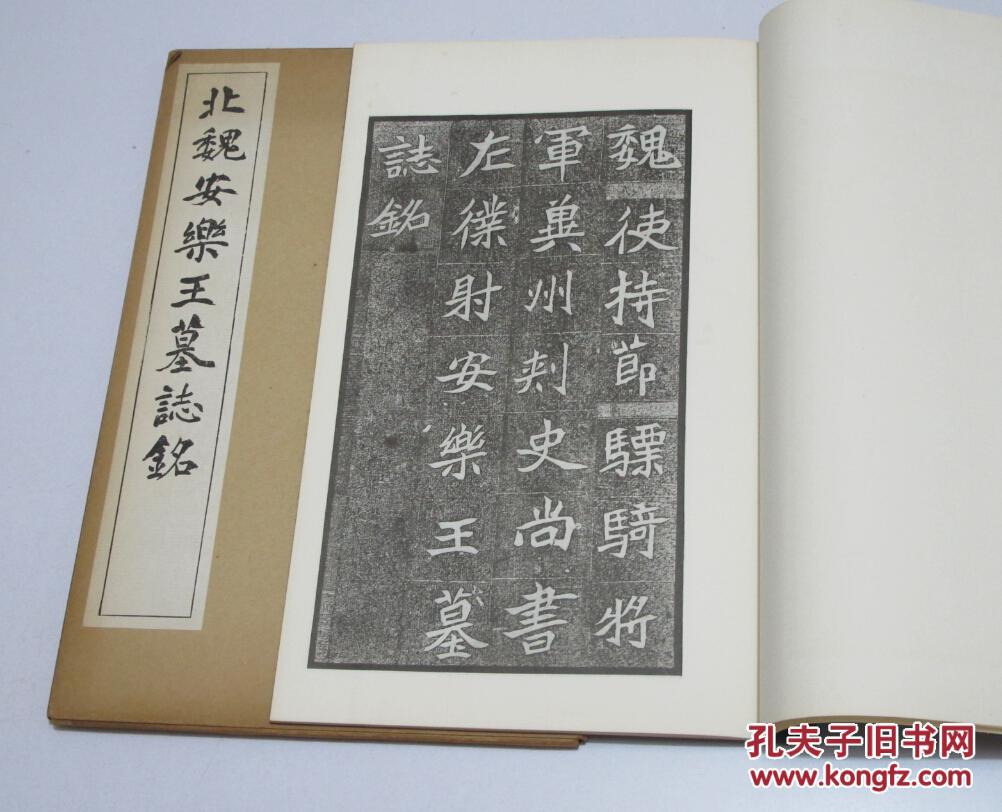 北魏安樂王墓誌銘
魏使持節驃騎將
軍冀州刺史尚書
左僕射安樂王墓
誌銘
孔夫子旧书网
www.kongfz.com